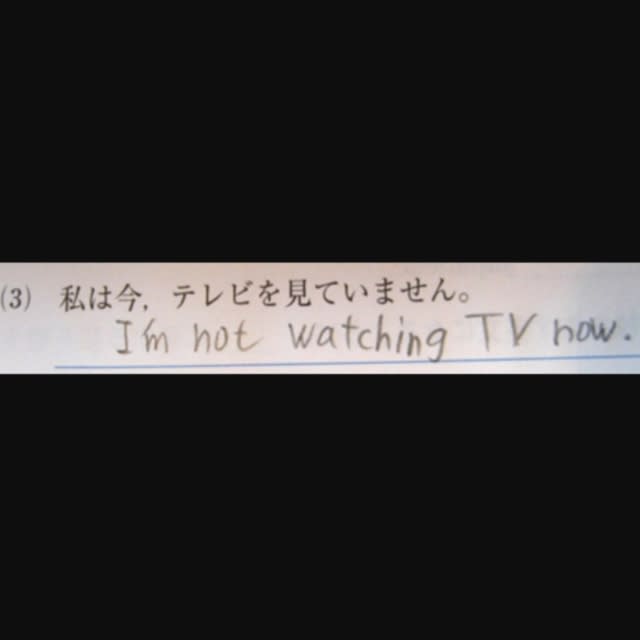 (3) 私は今，テレビを見ていません。
I'm not watching TV now.